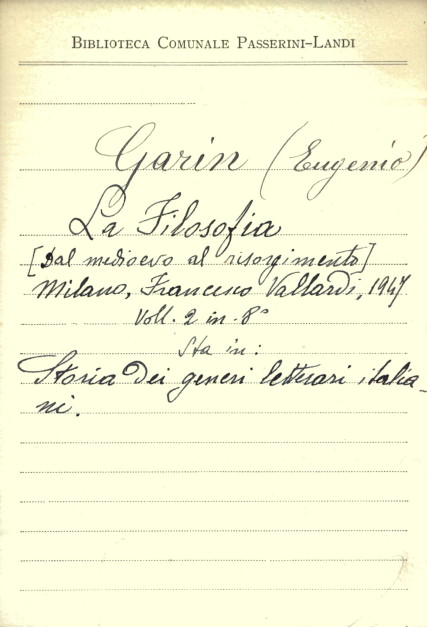 BIBLIOTECA COMUNALE PASSERINI-LANDI
Garin (Eugenio)
La Filosofia
[Dal medioevo al risorgimento]
Milano, Francesco Vallardi, 1947
Voll. 2 in-8°
Sta in:
Storia dei generi letterari italia-
ni.